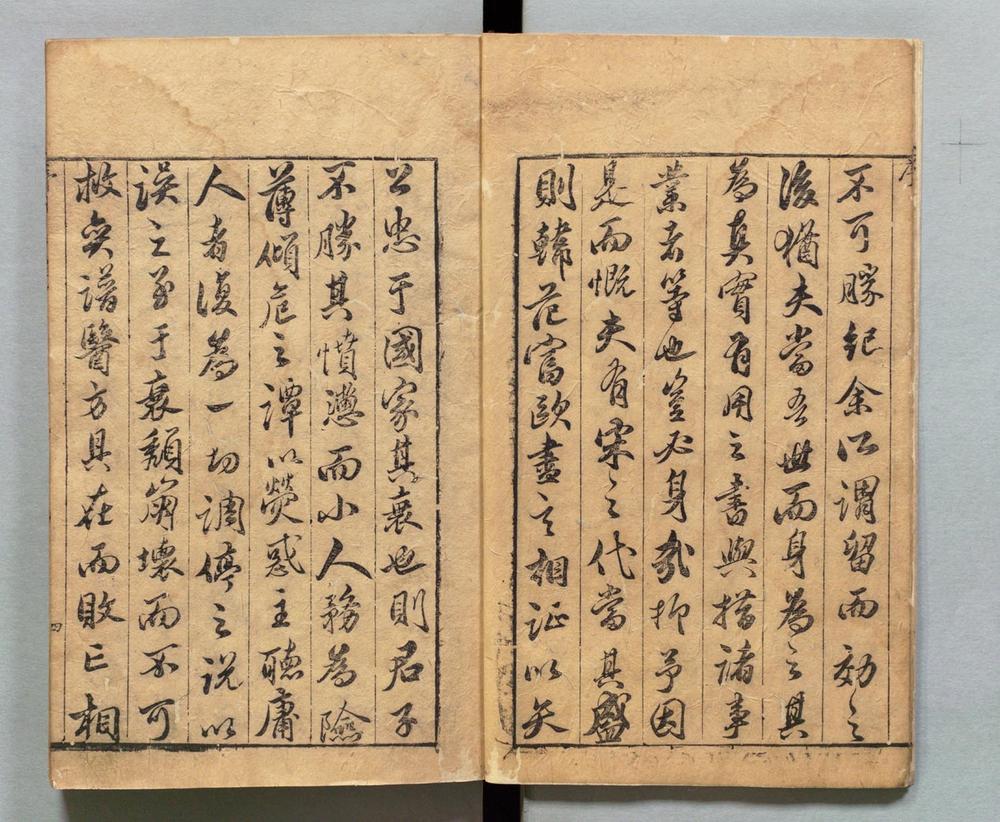 序
不可勝紀余所謂留而効之
後猶夫當吾世而身為之其
為真實有用之書與措諸事
業者等也豈必身哉抑予因
是而慨夫有宋之代當其盛
則韓范富歐盡言相証以矢
公忠于國家其衰也則君子
不勝其憤懣而小人務為險
薄傾危之譚以熒惑主聽庸
人者復為一切調停之説以
誤之至于衰頹崩壞而不可
救奕譜醫方具在而敗亡相
四